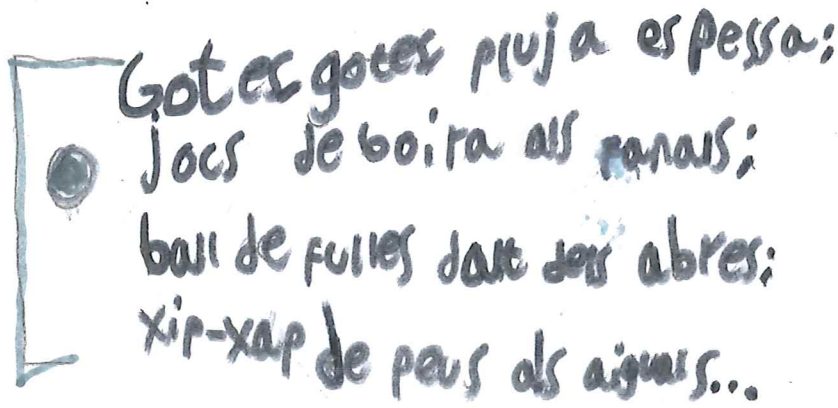 Gotes gotes pluja espessa;
jocs de boira als canals;
ball de fulles dalt dels abres;
xip-xap de peus als aiguals...